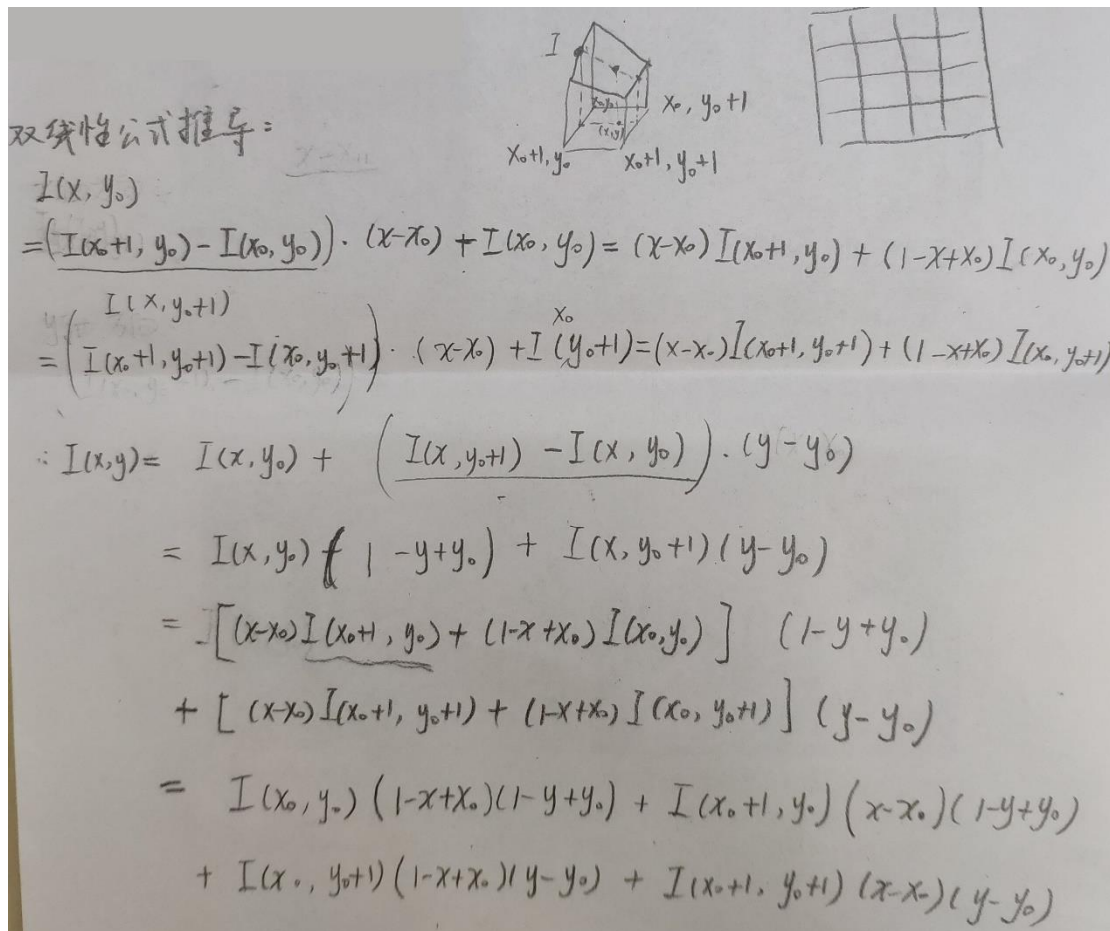 I
x₀, y₀+1
(x,y)
x₀+1, y₀
x₀+1, y₀+1
双线性公式推导:
I(x, y₀)
=(I(x₀+1, y₀) - I(x₀, y₀)) · (x-x₀) + I(x₀, y₀) = (x-x₀) I(x₀+1, y₀) + (1-x+x₀) I(x₀, y₀)
I(x, y₀+1)
x₀
=(I(x₀+1, y₀+1) - I(x₀, y₀+1)) · (x-x₀) + I(y₀+1) = (x-x₀) I(x₀+1, y₀+1) + (1-x+x₀) I(x₀, y₀+1)
∴ I(x,y) = I(x, y₀) + (I(x, y₀+1) - I(x, y₀)) · (y-y₀)
= I(x, y₀) (1-y+y₀) + I(x, y₀+1) (y-y₀)
= [(x-x₀) I(x₀+1, y₀) + (1-x+x₀) I(x₀, y₀)] (1-y+y₀)
+ [(x-x₀) I(x₀+1, y₀+1) + (1-x+x₀) I(x₀, y₀+1)] (y-y₀)
= I(x₀, y₀) (1-x+x₀)(1-y+y₀) + I(x₀+1, y₀) (x-x₀)(1-y+y₀)
+ I(x₀, y₀+1) (1-x+x₀)(y-y₀) + I(x₀+1, y₀+1) (x-x₀)(y-y₀)